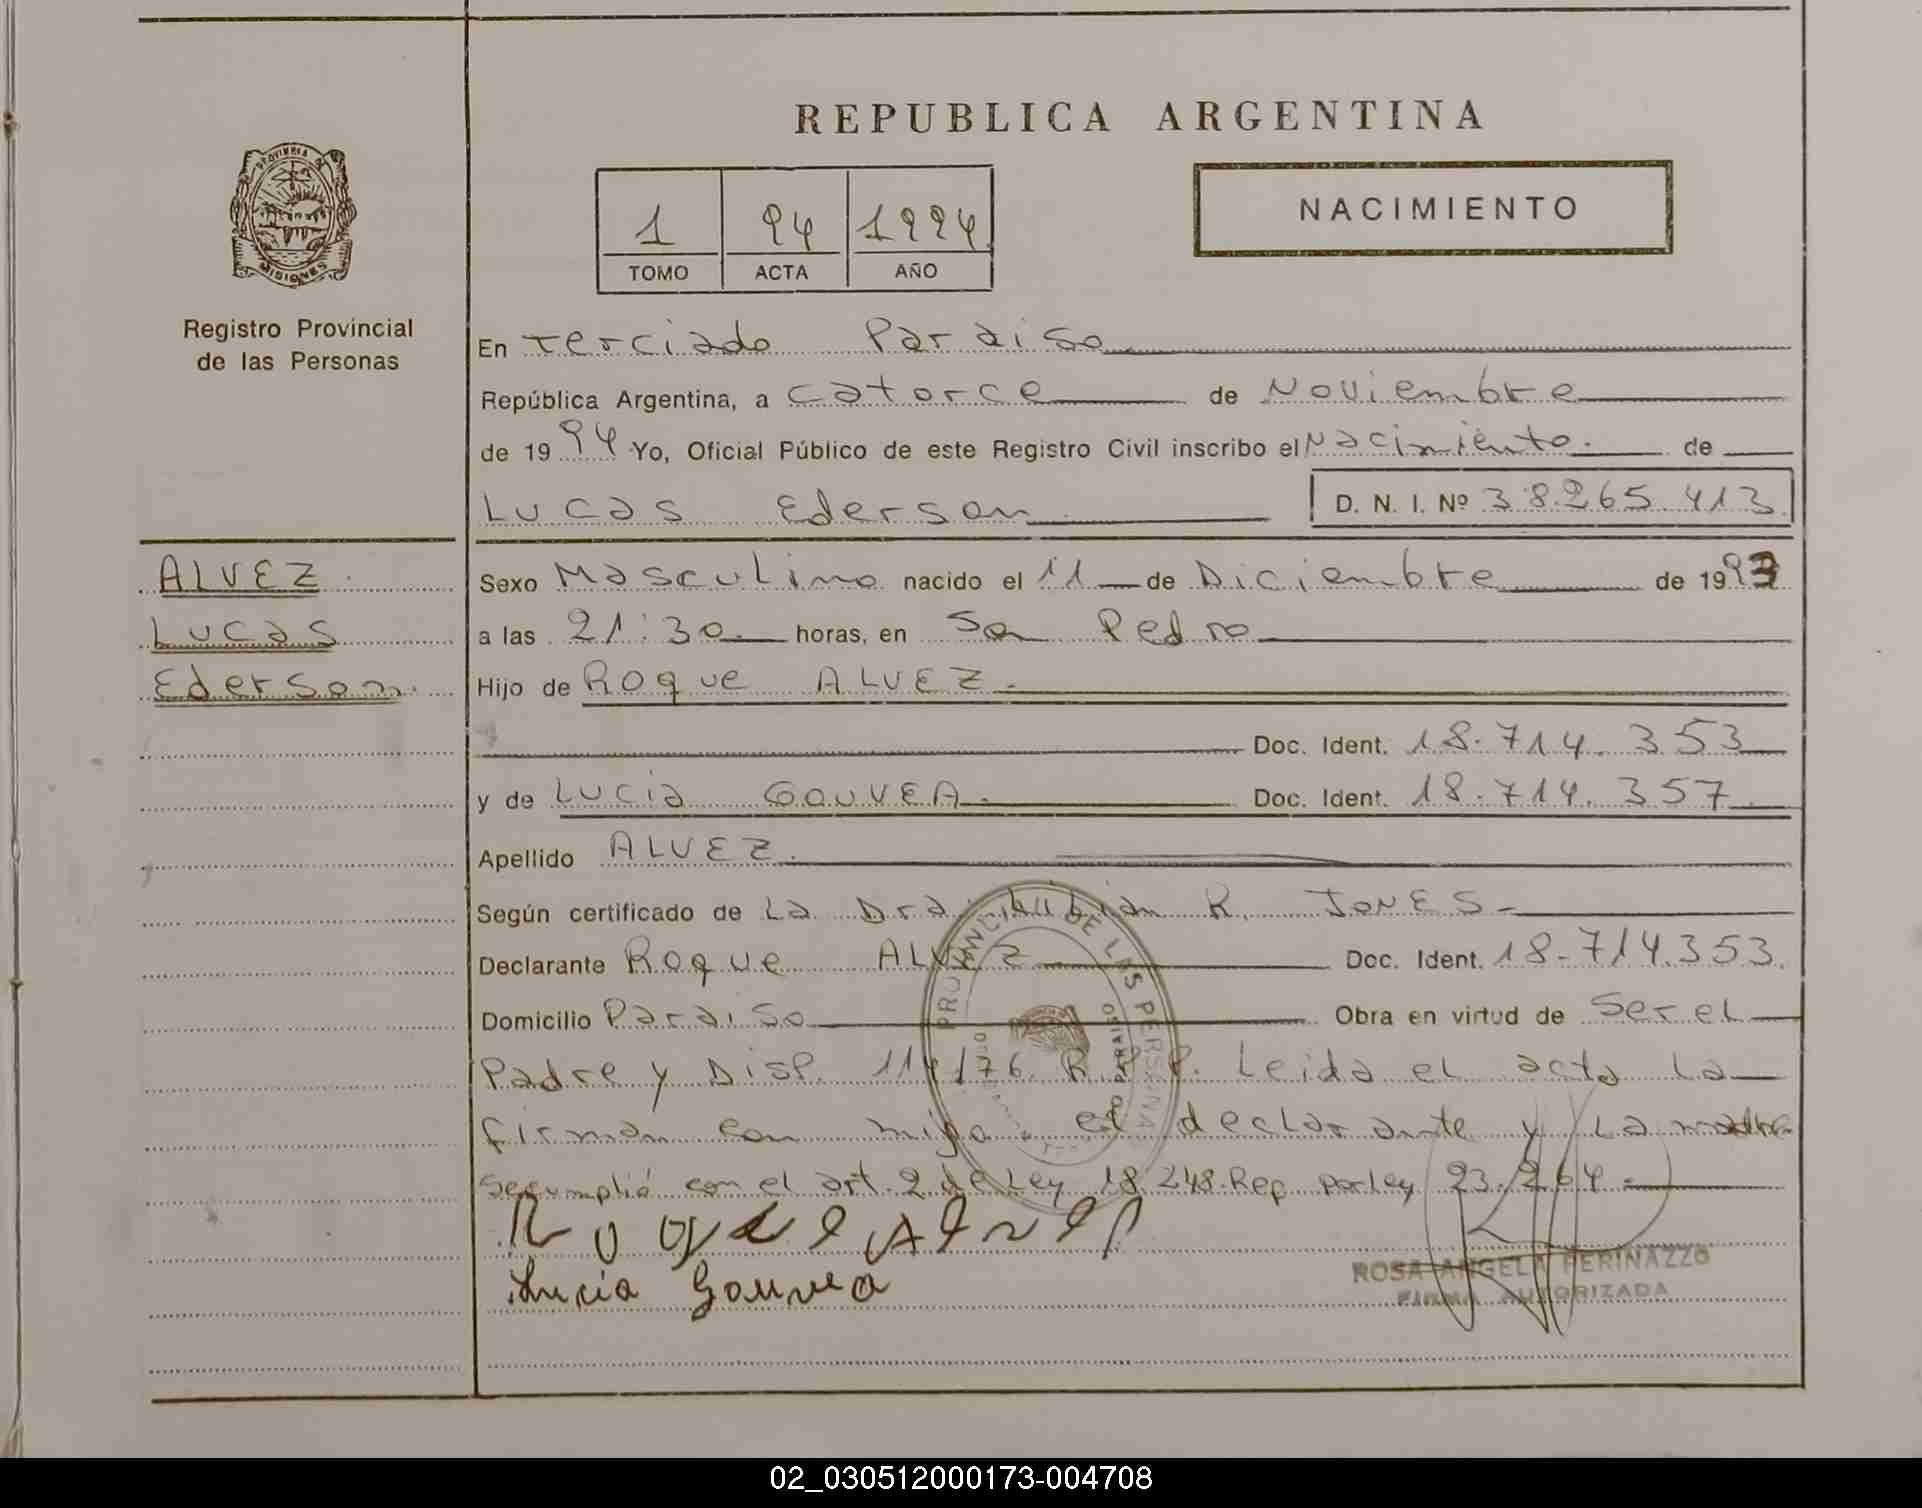 REPUBLICA ARGENTINA
PROVINCIA DE
MISIONES
Registro Provincial
de las Personas
1 94 1994
TOMO ACTA AÑO
NACIMIENTO
En Terciado Paraiso
República Argentina, a catorce de Noviembre
de 1994 Yo, Oficial Público de este Registro Civil inscribo el Nacimiento. de
Lucas Ederson D. N. I. Nº 38.265.413
ALVEZ
Lucas
Ederson.
Sexo Masculino nacido el 11 de Diciembre de 1993
a las 21:30 horas, en San Pedro
Hijo de Roque ALVEZ.
Doc. Ident. 18.714.353
y de Lucia GOUVEA. Doc. Ident. 18.714.357
Apellido ALVEZ.
Según certificado de La Dra. Lilian R. JONES
Declarante Roque ALVEZ Doc. Ident. 18.714.353.
Domicilio Paraiso Obra en virtud de Ser el
Padre y Disp. 114/76. R.P.P. Leida el acta La
firman con migo el declarante y La madre
Se cumplió con el art. 2 de Ley 18.248. Rep por Ley 23.264
Lucia Gouvea
ROSA ANGELA PERINAZZO
FIRMA AUTORIZADA
02_030512000173-004708